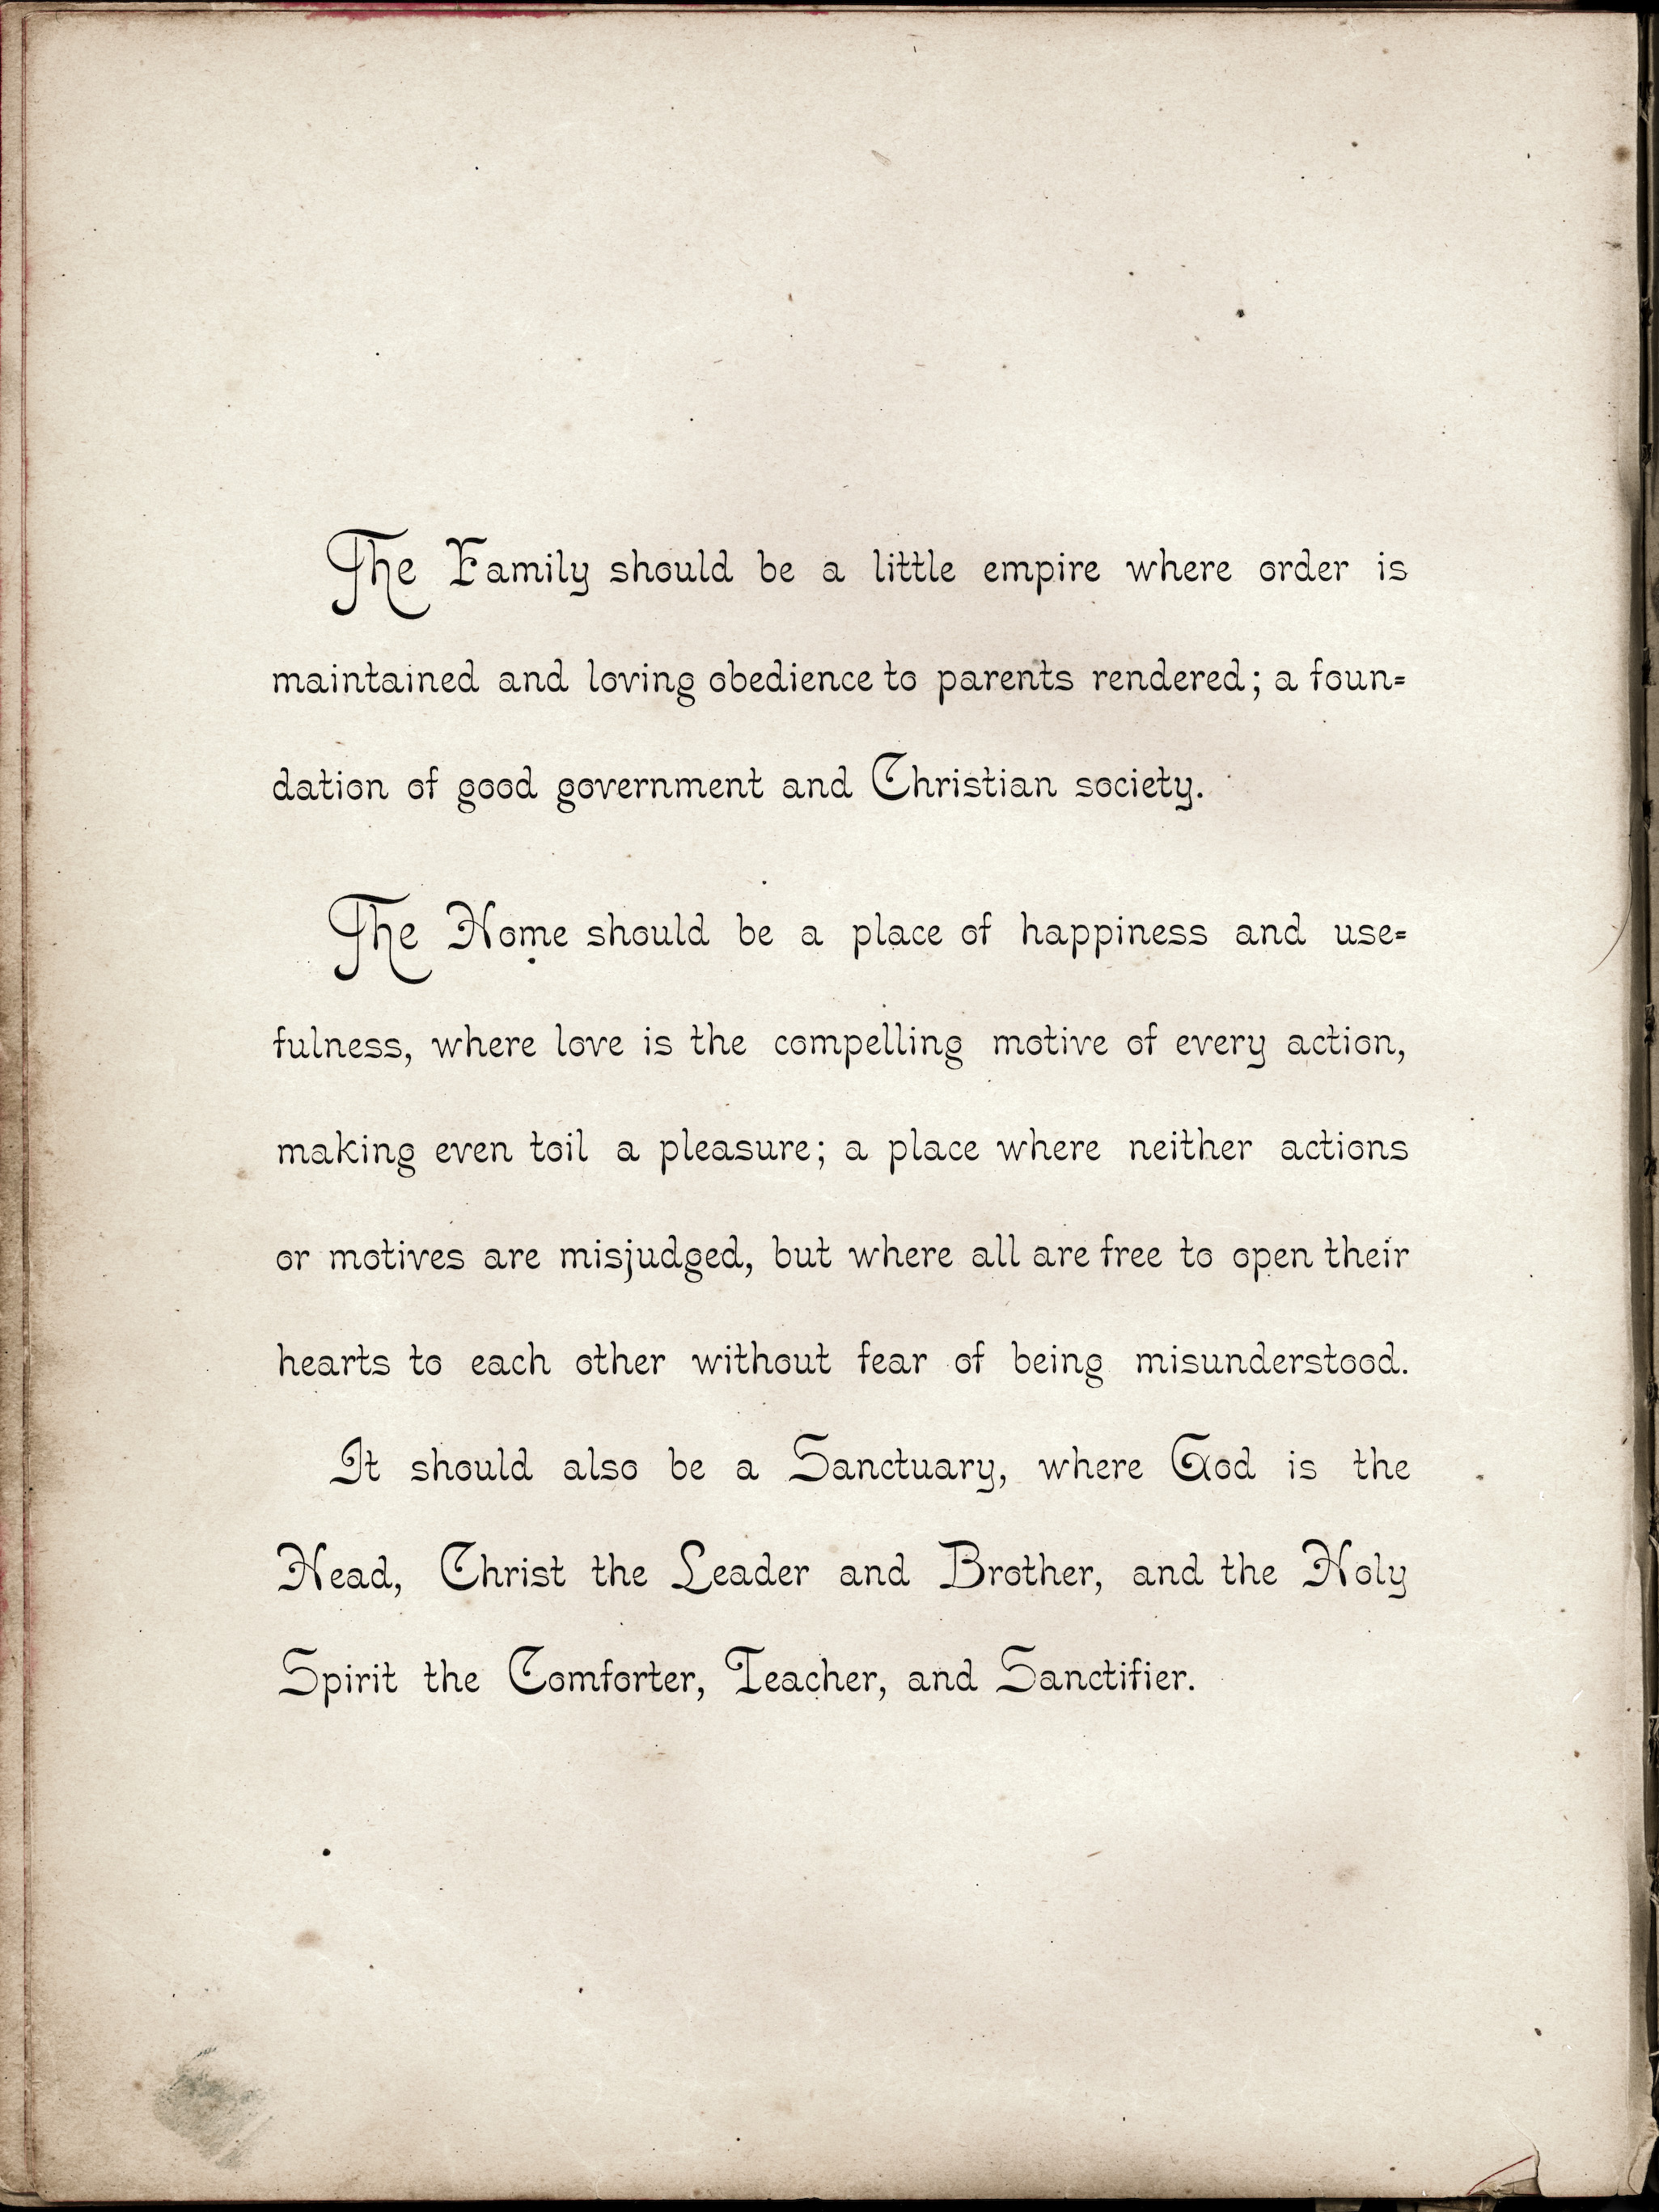 The Family should be a little empire where order is
maintained and loving obedience to parents rendered; a foun=
dation of good government and Christian society.
The Home should be a place of happiness and use=
fulness, where love is the compelling motive of every action,
making even toil a pleasure; a place where neither actions
or motives are misjudged, but where all are free to open their
hearts to each other without fear of being misunderstood.
It should also be a Sanctuary, where God is the
Head, Christ the Leader and Brother, and the Holy
Spirit the Comforter, Teacher, and Sanctifier.